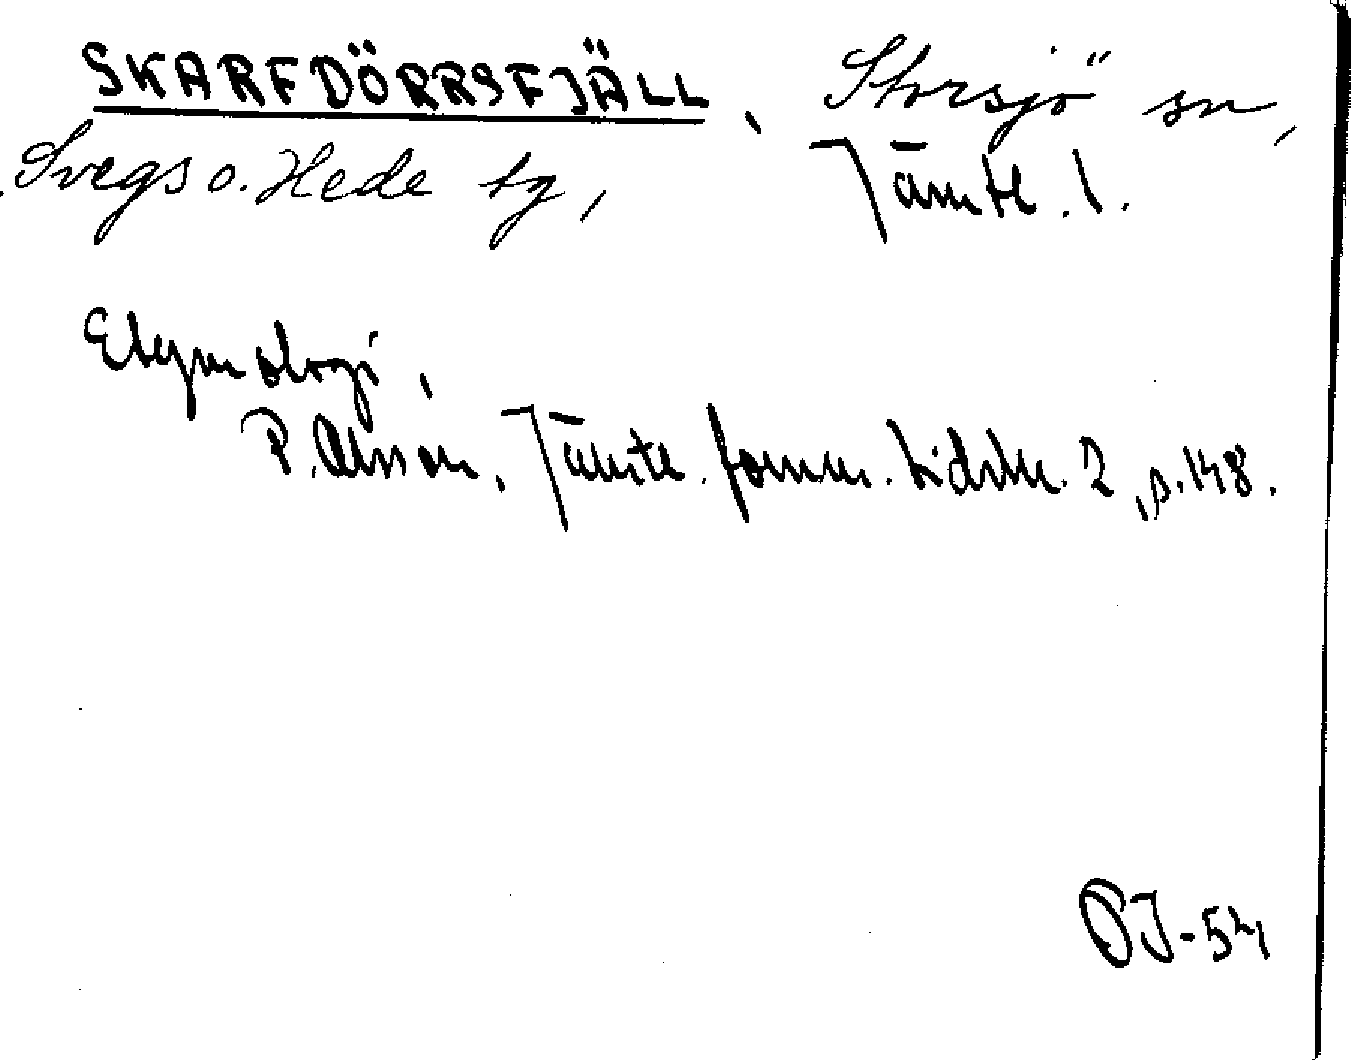 SKARFDÖRRSFJÄLL, Storsjö sn,
Svegs o. Hede tg, Jämtl. l.
Etymologi,
P. Olsson, Jämtl. fornm. tidskr. 2, s. 148.
OJ-54